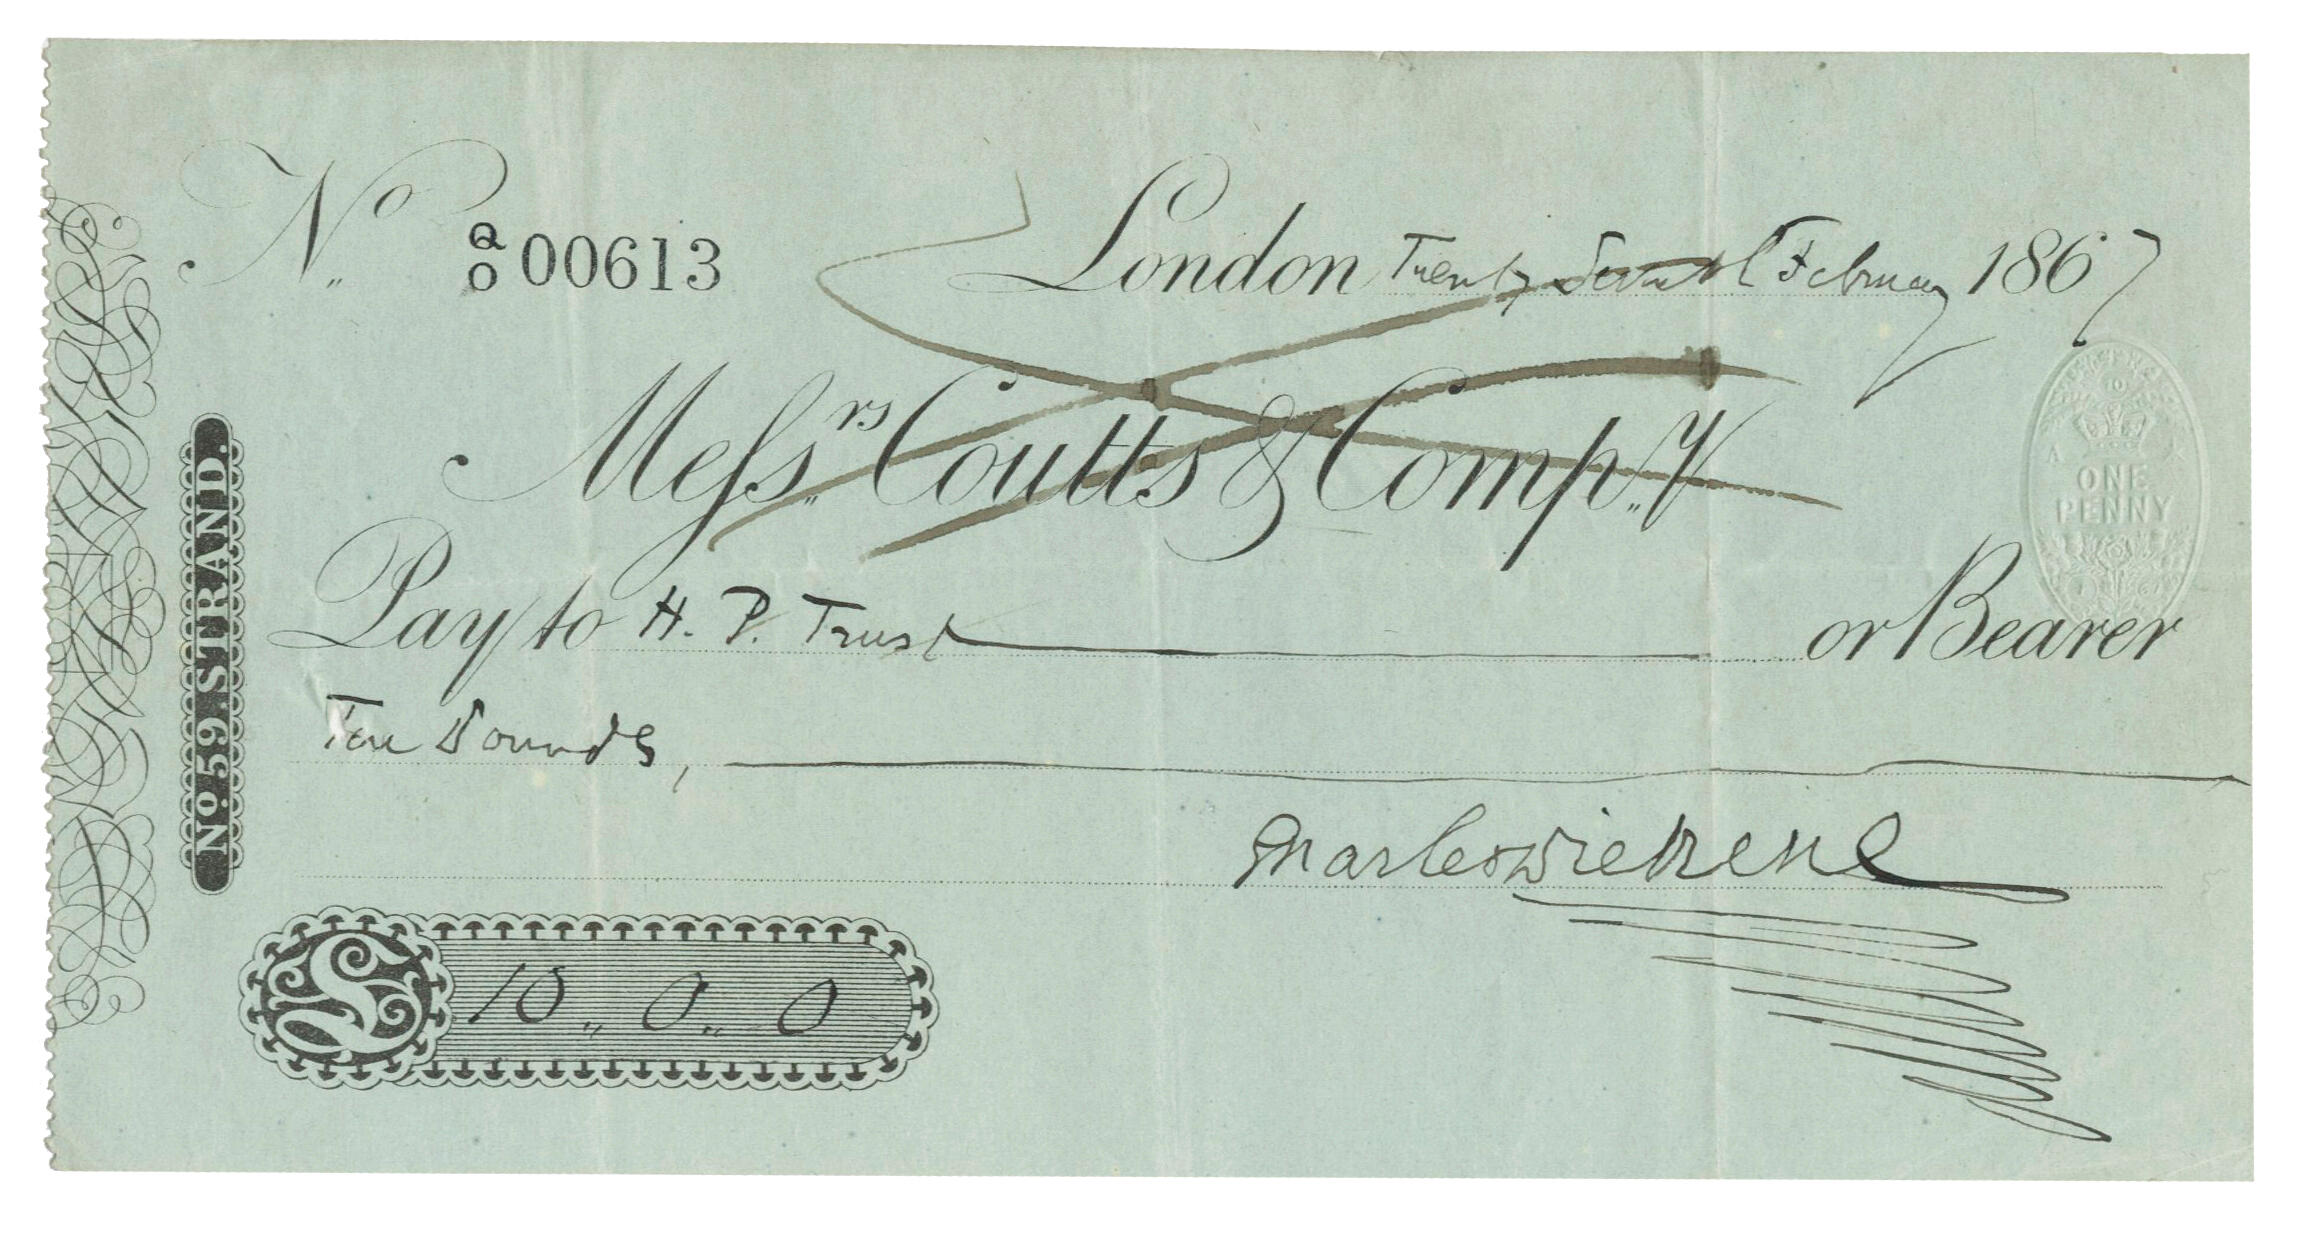 No. Q/0 00613
London Twenty Seventh February 1867
Messrs. Coutts & Comp.y
Pay to H. P. Trust or Bearer
Ten Pounds,
Charles Dickens
£ 10 ,, 0 ,, 0
No. 59. STRAND.
ONE
PENNY